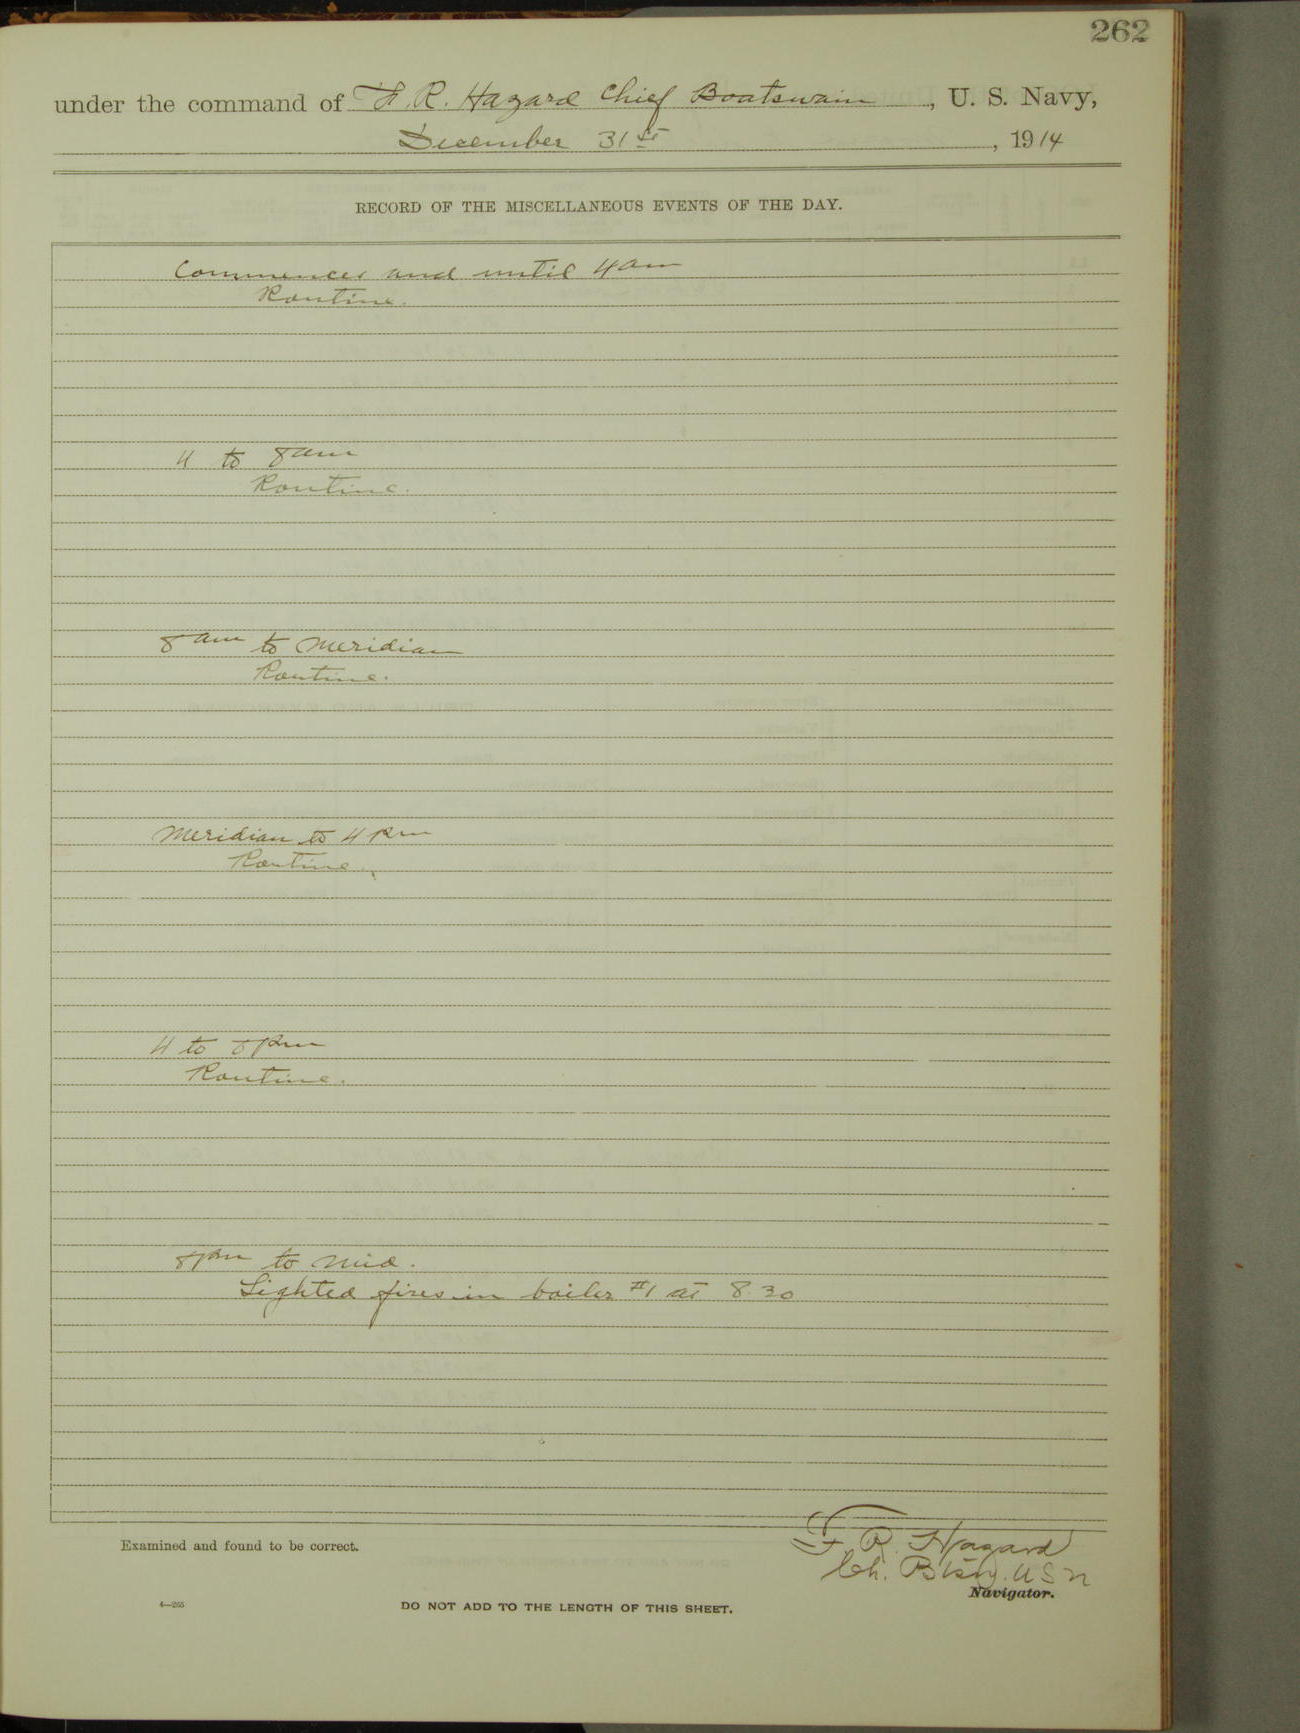 262
under the command of F. R. Hazard Chief Boatswain, U. S. Navy,
December 31st, 1914
RECORD OF THE MISCELLANEOUS EVENTS OF THE DAY.
Commences and until 4 am
Routine.
4 to 8 am
Routine.
8 am to Meridian
Routine.
Meridian to 4 pm
Routine.
4 to 8 pm
Routine.
8 pm to Mid.
Lighted fires in boiler #1 at 8.30
Examined and found to be correct.
F. R. Hazard
Ch. Btsn. U S N
Navigator.
4—265
DO NOT ADD TO THE LENGTH OF THIS SHEET.